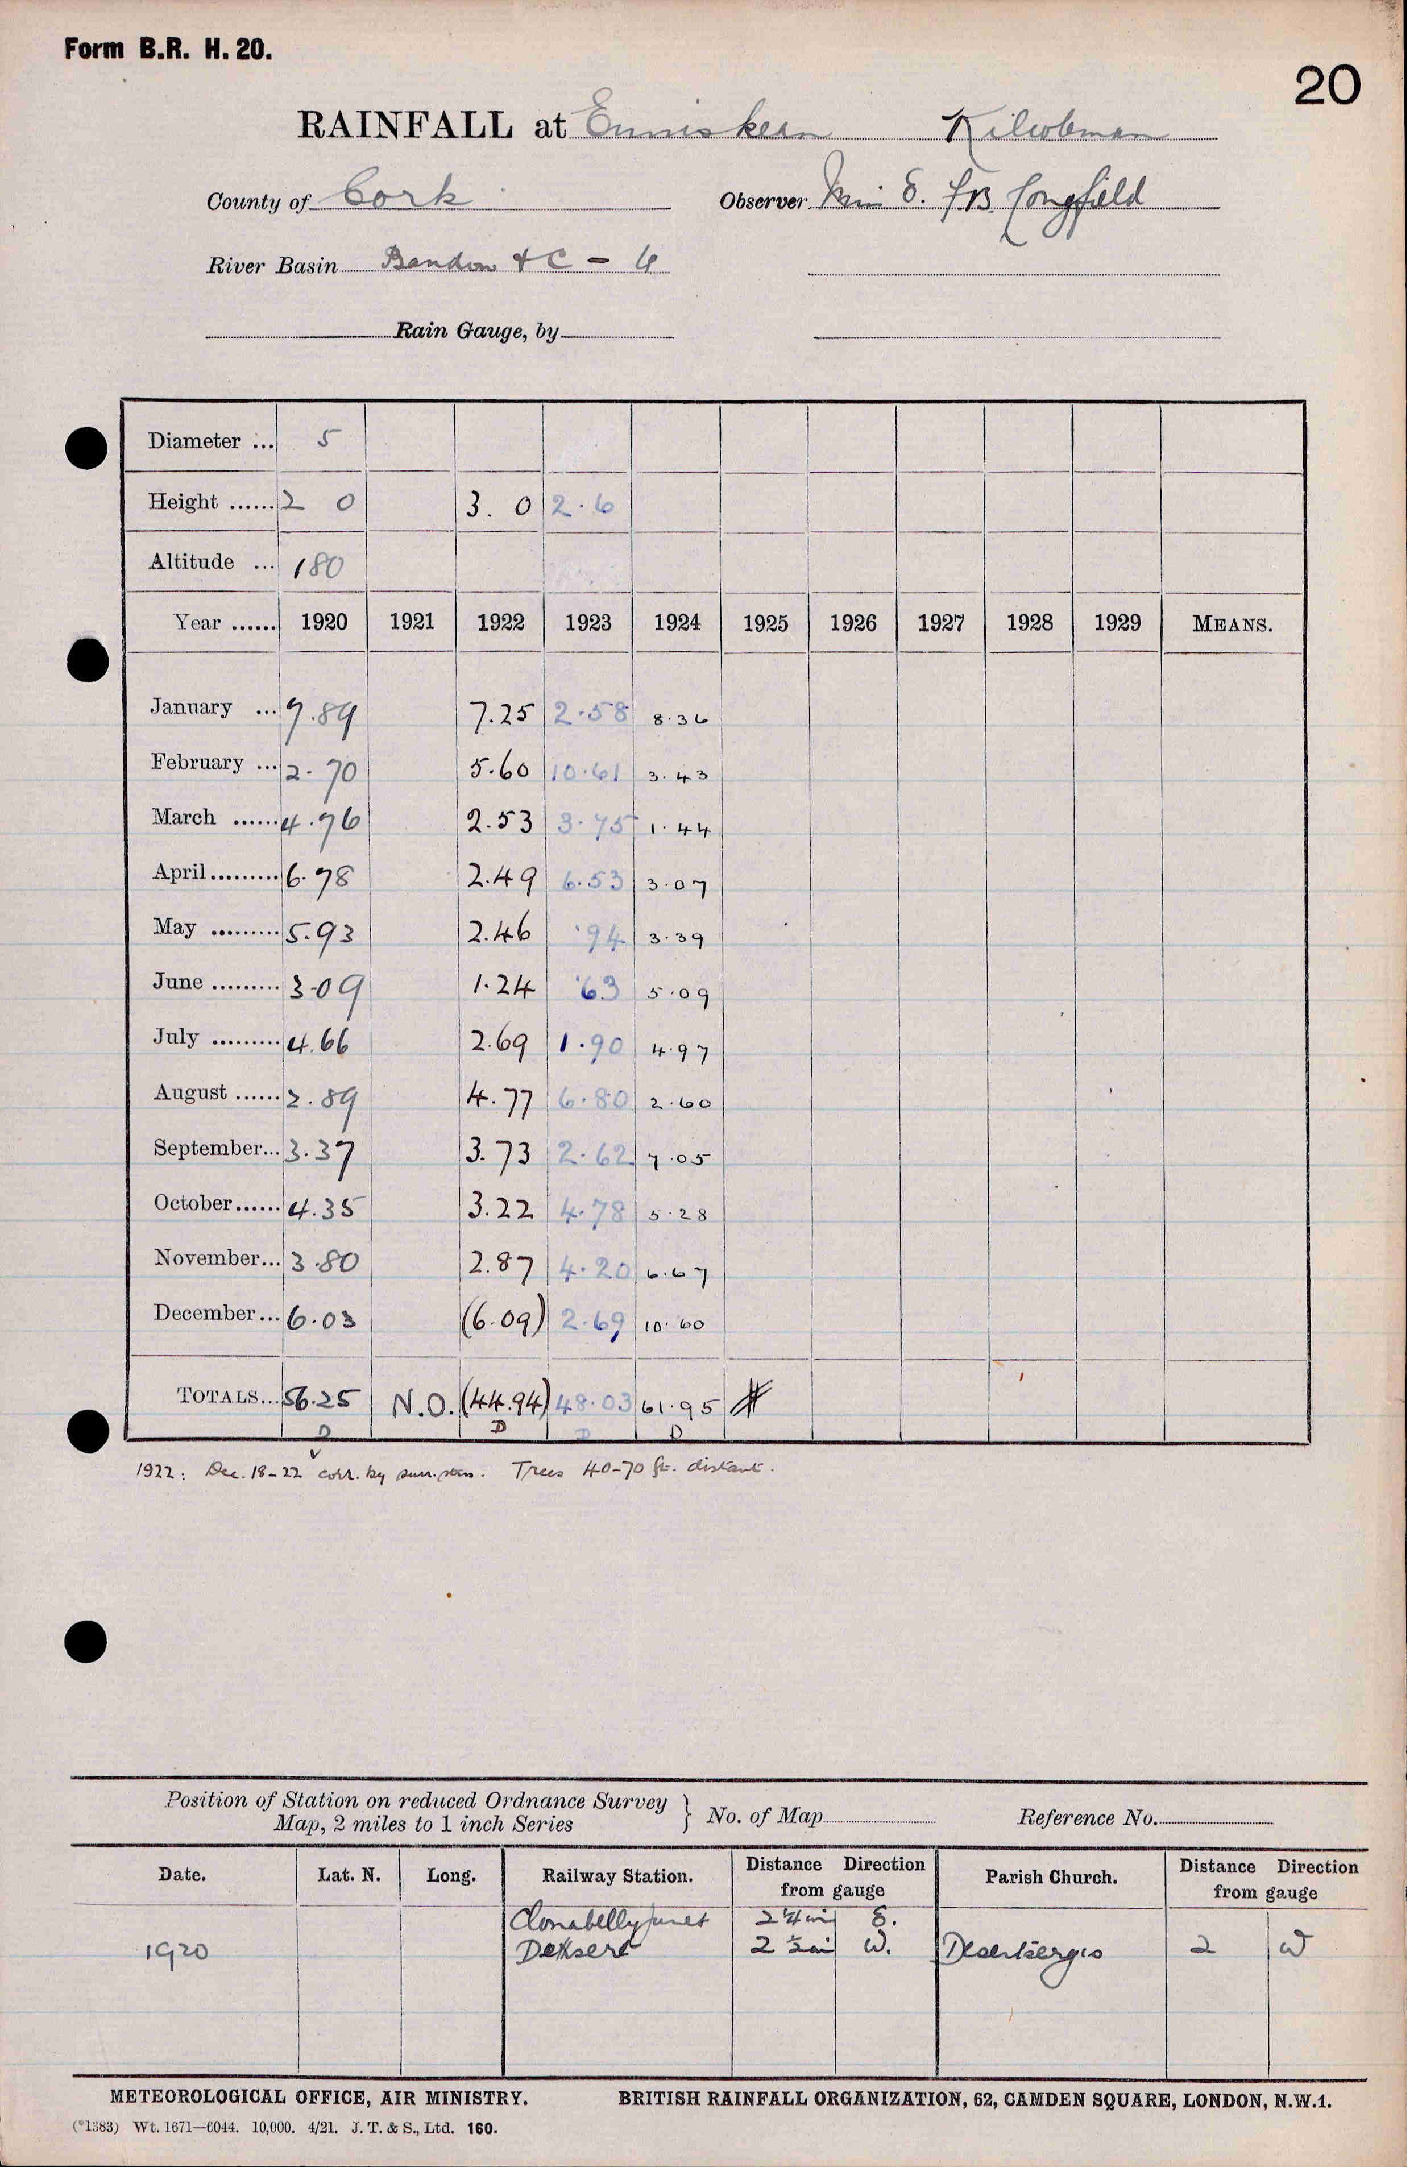 Form B.R. H. 20.
20
RAINFALL at Enniskean Kilcolman
County of Cork Observer Miss E. FB Longfield
River Basin Bandon & C - 6
Rain Gauge, by
Diameter ... 5
Height ...... 2 0 3. 0 2.6
Altitude ... 180
Year ...... 1920 1921 1922 1923 1924 1925 1926 1927 1928 1929 MEANS.
January ... 7.89 7.25 2.58 8.36
February ... 2.70 5.60 10.61 3.43
March ...... 4.76 2.53 3.75 1.44
April ......... 6.78 2.49 6.53 3.07
May ......... 5.93 2.46 .94 3.39
June ......... 3.09 1.24 .63 5.09
July ......... 4.66 2.69 1.90 4.97
August ...... 2.89 4.77 6.80 2.60
September... 3.37 3.73 2.62 7.05
October...... 4.35 3.22 4.78 5.28
November... 3.80 2.87 4.20 6.67
December... 6.03 (6.09) 2.69 10.60
TOTALS... 56.25 N.O. (44.94) 48.03 61.95
D D D D
1922: Dec. 18-22 corr. by surr. stns. Trees 40-70 ft. distant.
Position of Station on reduced Ordnance Survey
Map, 2 miles to 1 inch Series } No. of Map Reference No.
Date. Lat. N. Long. Railway Station. Distance Direction from gauge Parish Church. Distance Direction from gauge
2 1/4 mi S.
1920 2 1/2 mi W. Desertserges 2 W
METEOROLOGICAL OFFICE, AIR MINISTRY. BRITISH RAINFALL ORGANIZATION, 62, CAMDEN SQUARE, LONDON, N.W.1.
(*1383) Wt. 1671—6044. 10,000. 4/21. J. T. & S., Ltd. 160.